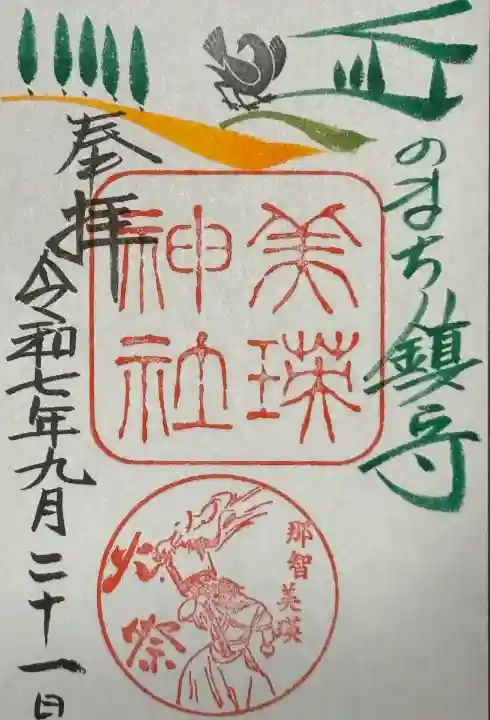 丘のまち鎮守
美瑛
神社
奉拝
令和七年九月二十一日
那智美瑛
火祭